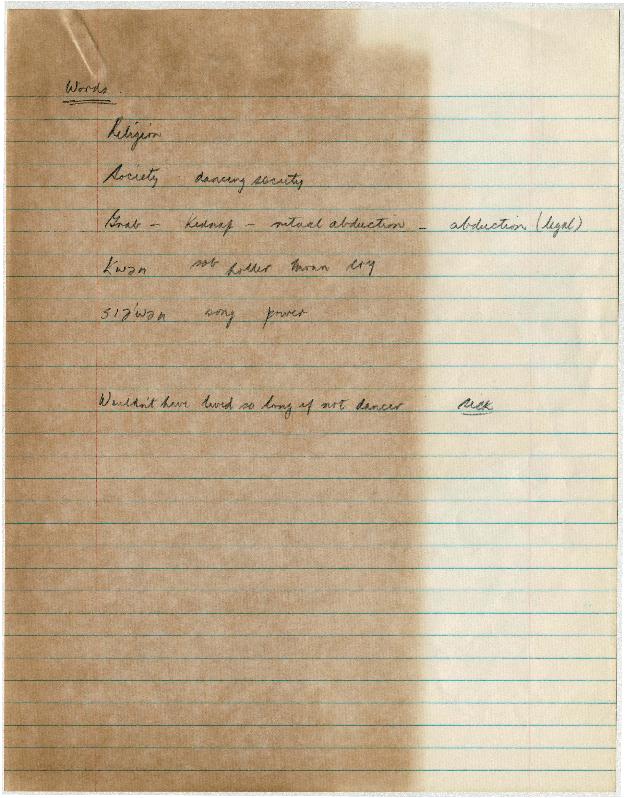 Words
Religion
Society dancing society
Grab - Kidnap - ritual abduction - abduction (legal)
Kwən sob holler moan cry
siə'wən song power
Wouldn't have lived so long if not dancer sick